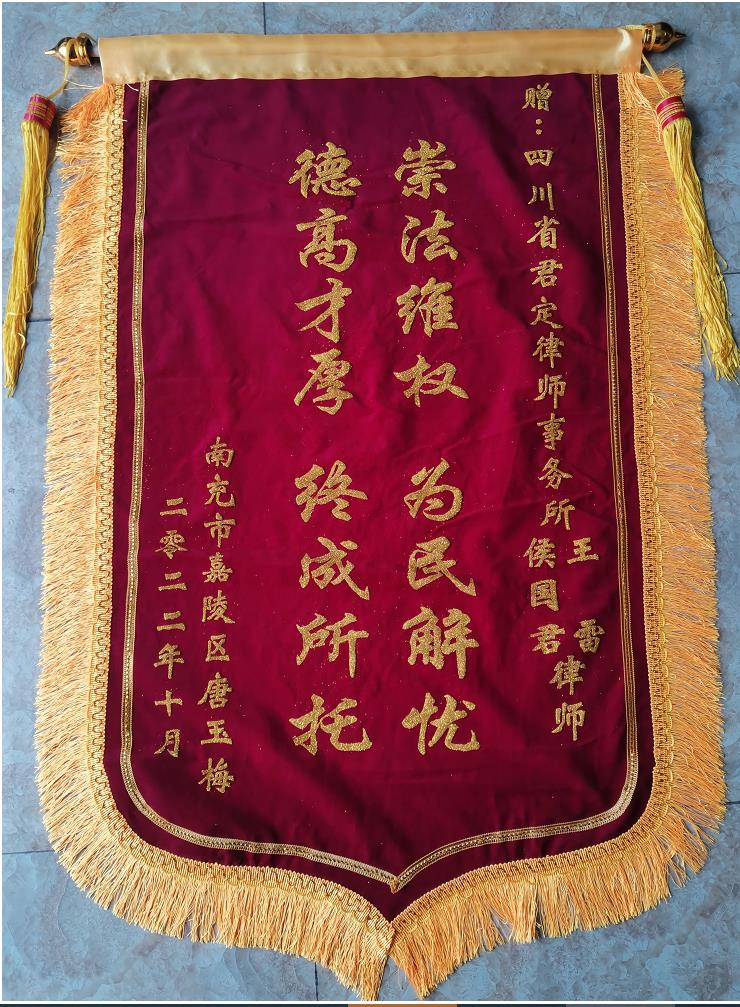 赠：四川省君定律师事务所王雷侯国君律师
崇法维权 为民解忧
德高才厚 终成所托
南充市嘉陵区唐玉梅
二零二二年十月